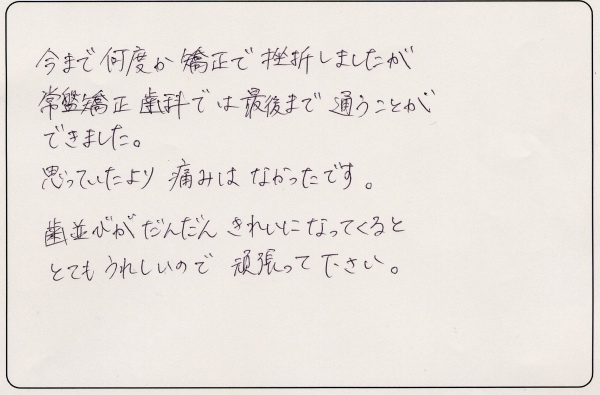 今まで何度か矯正で挫折しましたが
常盤矯正歯科では最後まで通うことが
できました。
思っていたより痛みはなかったです。
歯並びがだんだんきれいになってくると
とてもうれしいので頑張って下さい。